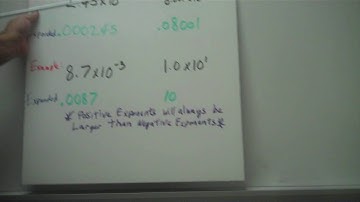 Expanded .000245 .08001
Example: 8.7x10⁻³ 1.0x10¹
Expanded .0087 10
* Positive Exponents will always be
Larger than Negative Exponents *